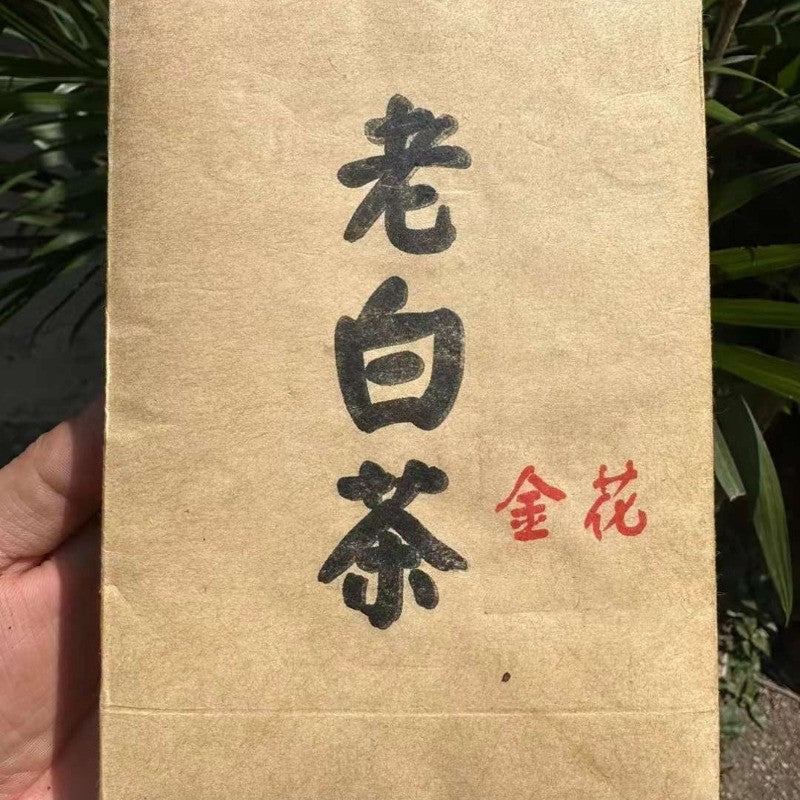 老白茶
金花